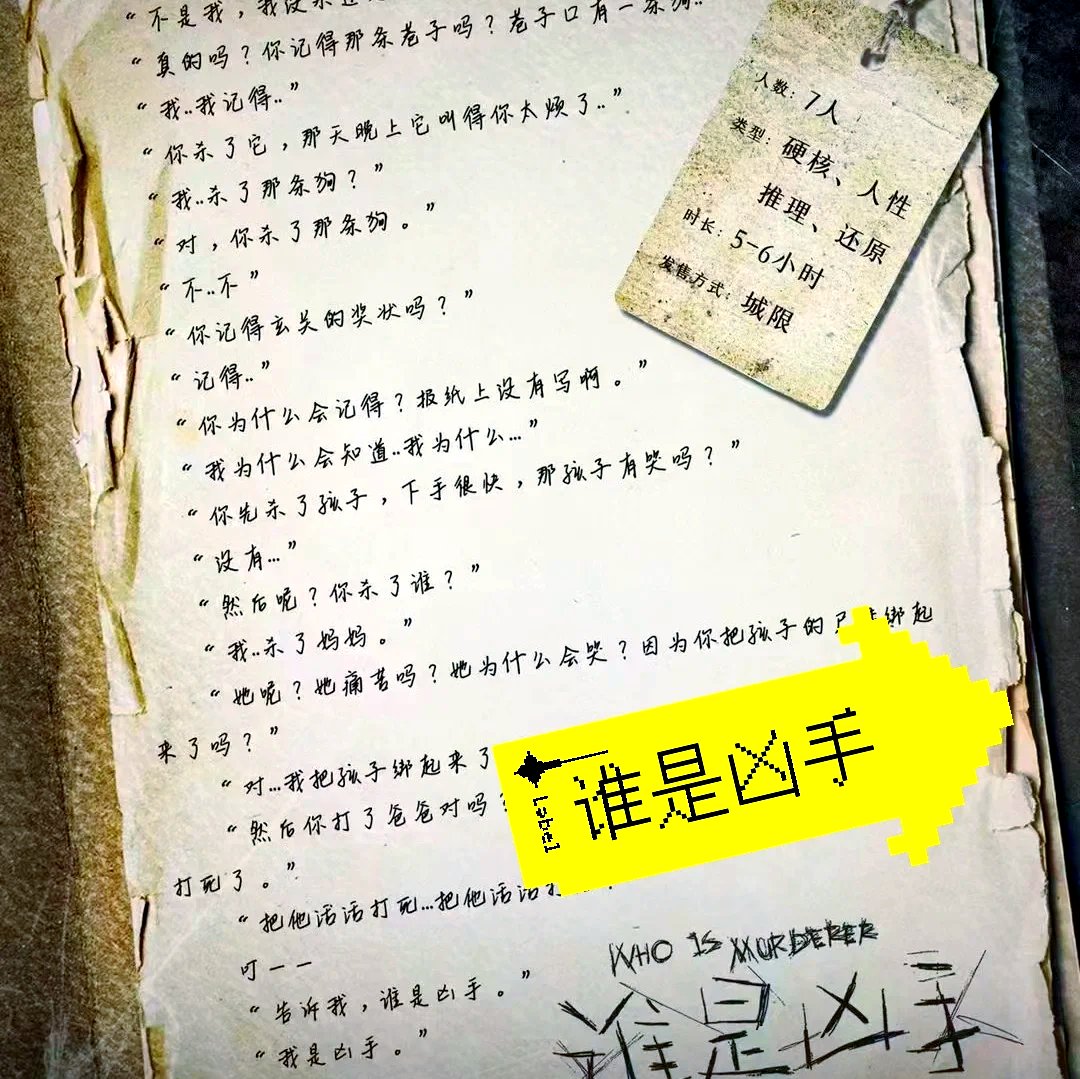 “不是我，我没杀
“真的吗？你记得那条巷子吗？巷子口有一条狗..
“我..我记得..”
“你杀了它，那天晚上它叫得你太烦了..”
“我..杀了那条狗？”
“对，你杀了那条狗。”
“不..不”
“你记得玄关的奖状吗？”
“记得..”
“你为什么会记得？报纸上没有写啊。”
“我为什么会知道..我为什么...”
“你先杀了孩子，下手很快，那孩子有哭吗？”
“没有...”
“然后呢？你杀了谁？”
“我..杀了妈妈。”
“她呢？她痛苦吗？她为什么会哭？因为你把孩子的 绑起
来了吗？”
“对...我把孩子绑起来了
“然后你打了爸爸对吗？
打死了。”
“把他活活打死...把他活活
叮——
“告诉我，谁是凶手。”
“我是凶手。”
人数：7人
类型：硬核、人性
推理、还原
时长：5-6小时
发售方式：城限
Label
谁是凶手
WHO IS MURDERER
谁是凶手